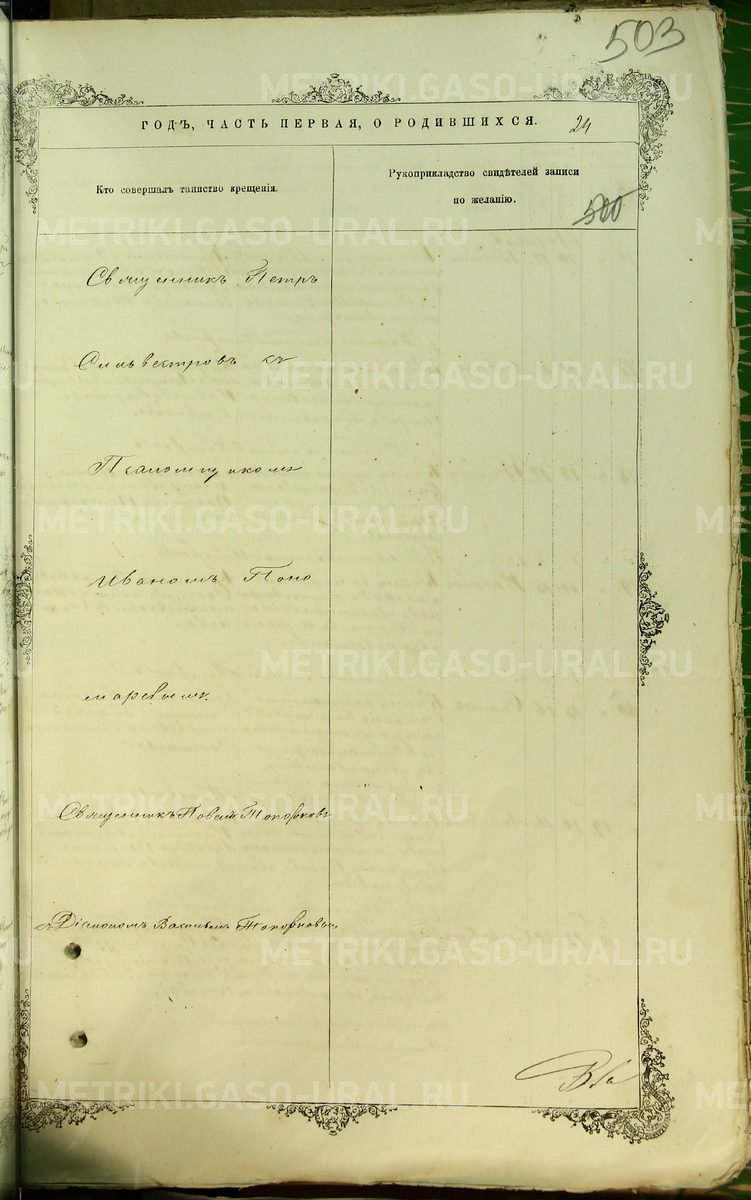 503
ГОДЪ, ЧАСТЬ ПЕРВАЯ, О РОДИВШИХСЯ. 24
Кто совершалъ таинство крещенія.
Рукоприкладство свидѣтелей записи
по желанію.
500
Священникъ Петръ
Сильвестровъ съ
Псаломщикомъ
Иваномъ Поно
маревымъ.
Священникъ Павелъ Топорковъ
съ Діакономъ Топорковы
METRIKI.GASO-URAL.RU